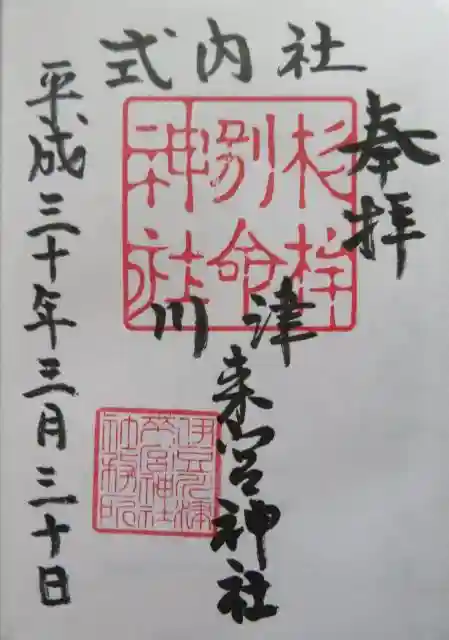 式内社
奉拝
杉桙
別命
神社
川津
来宮神社
伊豆河津
来宮神社
社務所
平成三十年三月三十日